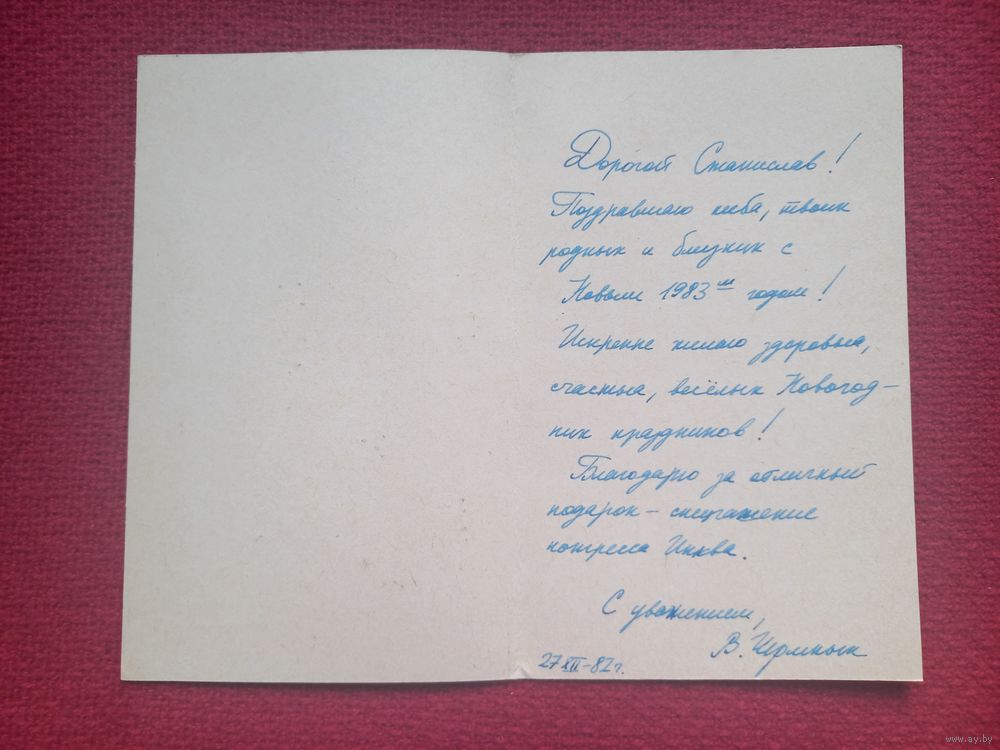 Дорогой Станислав!
Поздравляю тебя, твоих
родных и близких с
Новым 1983им годом!
Искренне желаю здоровья,
счастья, весёлых Новогод-
них праздников!
Благодарю за отличный
подарок – спецгашение
конгресса Инква.
С уважением,
В.
27 XII – 82 г.
www.ay.by